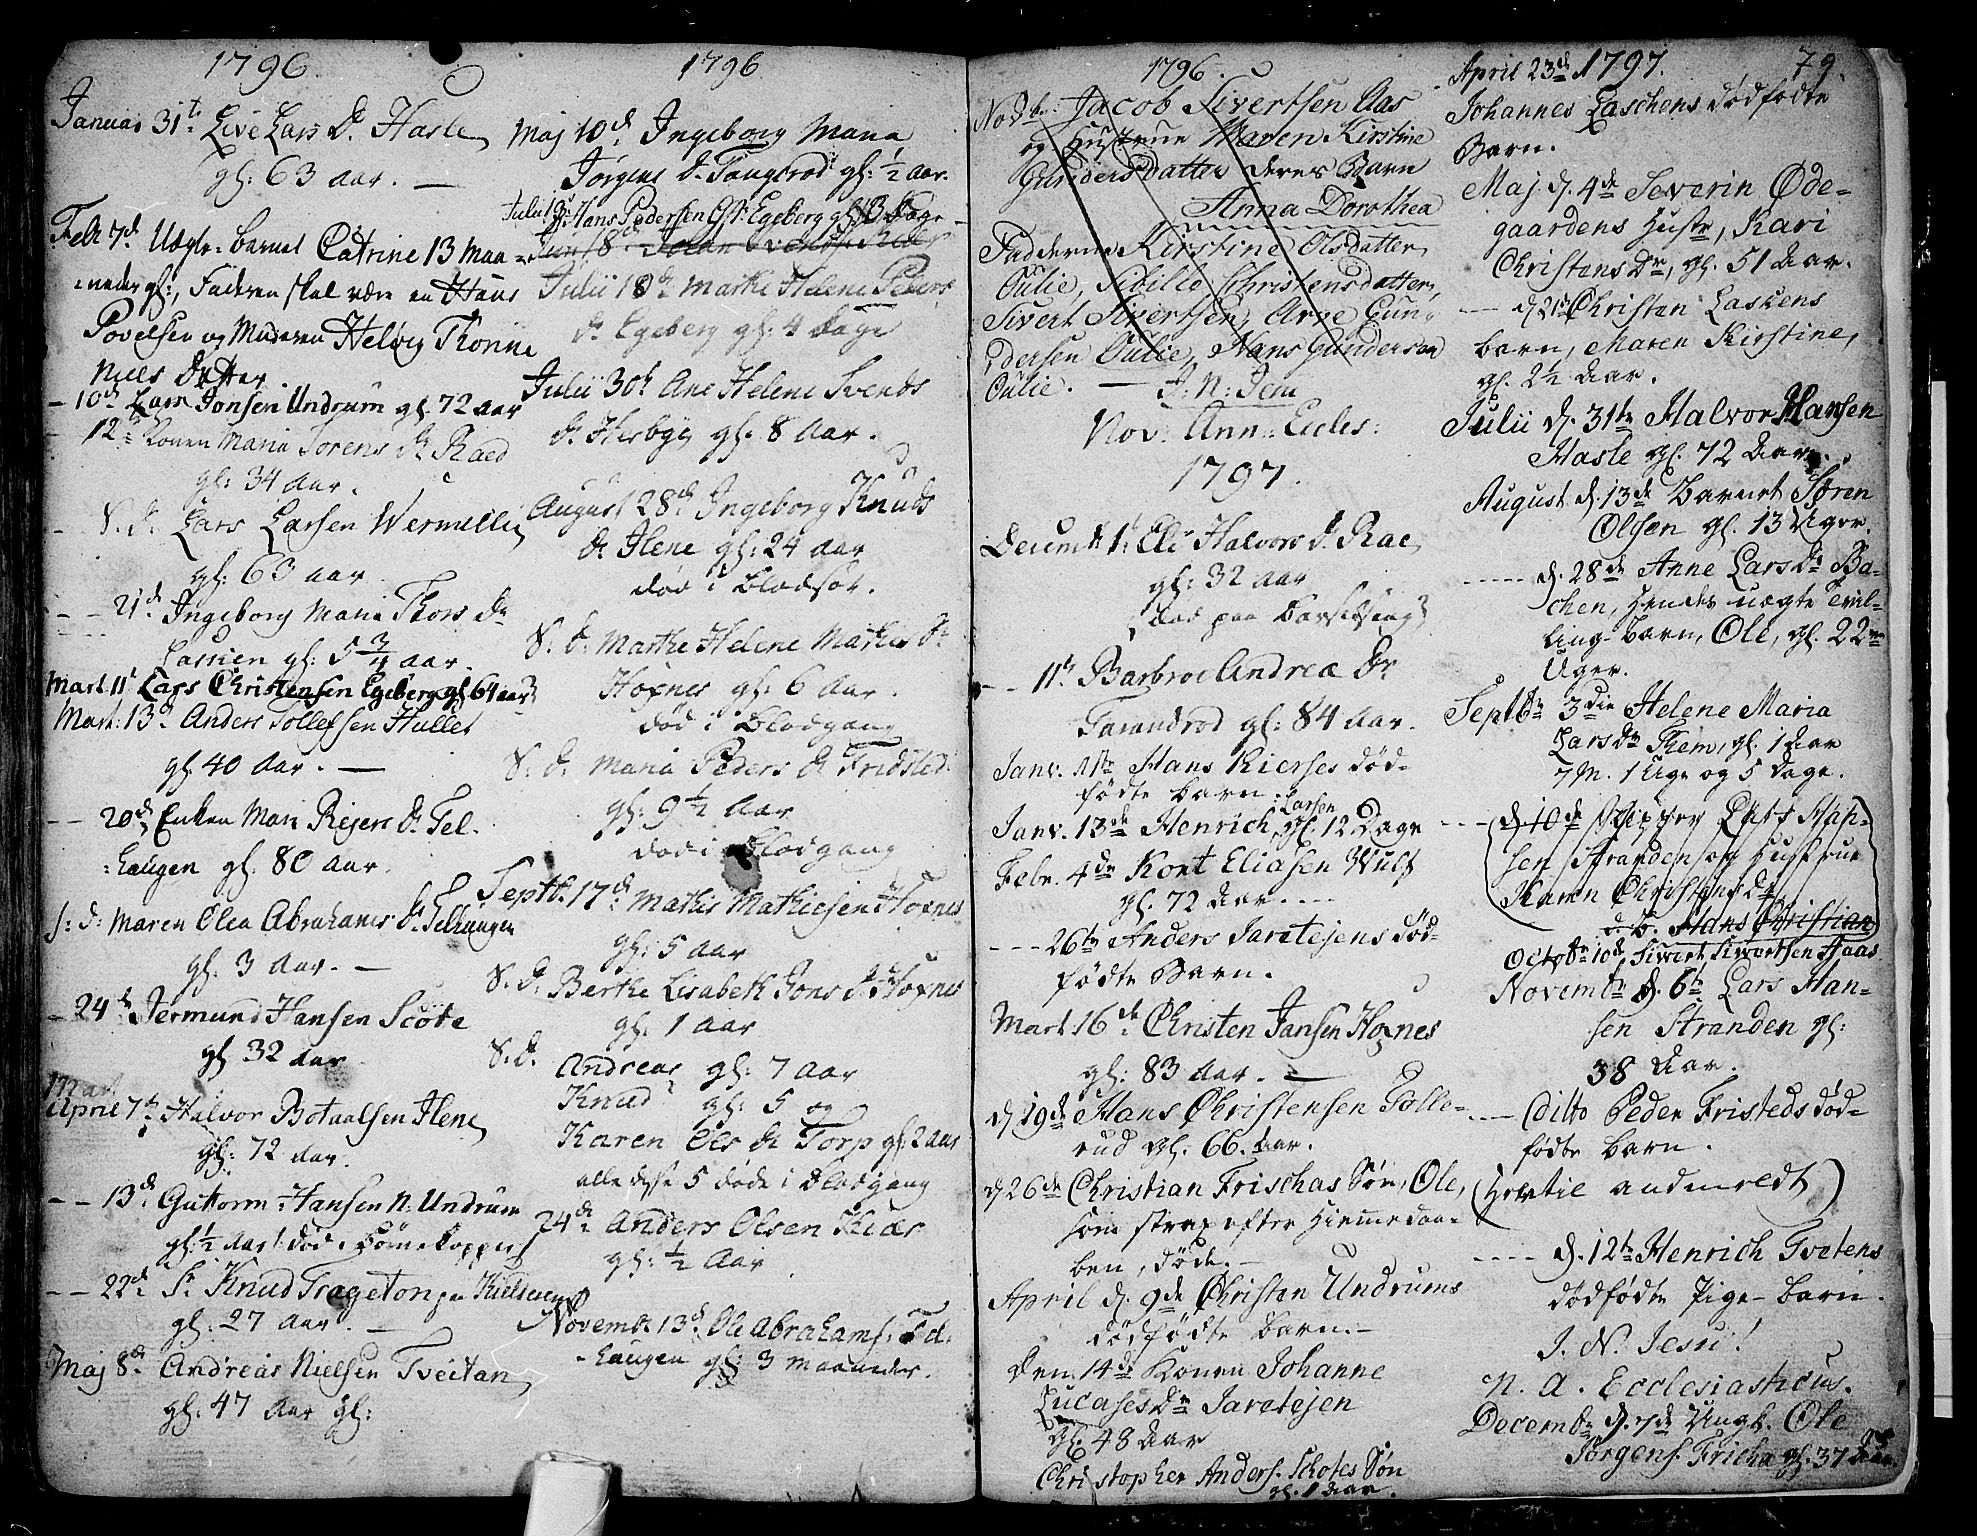 1796
Januar 31te Live Lars Dr Hasle
gl: 63 aar. —
Febr 7d Uægte barnet Catrine 13 maa=
=neder gl:, Faderen skal være en Hans
Povelsen og Moderen Helvig Thonne
Niels Datter.
— 10d Lars Jonsen Undrum gl. 72 aar
— 12d Konen Maria Sorens Dr Raed
gl: 34 aar.
— S. d. Lars Larsen Wermelli
gl: 63 aar.
— — 21d Ingeborg Maria Thors Dr
Lassien gl: 5 3/4 aar.
Mart. 11t Lars Christensen Egeberg gl 64 aar
Mart: 13d Anders Tollefsen Hullet
gl. 40 Aar. —
— — 20d Enken Mari Reiers Dr Tel=
=haugen gl: 80 aar.
S: d: Maren Olea Abrahams Dr Telhaugen
gl: 3 Aar. —
— 24d Jermund Hansen Scöte
gl 32 aar
Mart
April 7de Halvor Botaalsen Ilene
gl: 72 aar.
— — 13d Guttorm Hansen N: Undrum
gl: 1/2 Aar død i Börnekopper
— — 22d Sr Knud Trageton paa Kielsenes
gl: 27 aar. —
Maj 8d Andreas Nielsen Tveitan
gl: 47 Aar gl:
1796
Maj 10d Ingeborg Maria
Jørgens Dr Taugsrod gl: 1/2 aar.
Julii 3 Hans Pedersen Egeberg gl 3 Dage
Julii 18de Marthe Helene Peders
Dr Egeberg gl: 4 Dage
Julii 30te Ane Helene Svends
Dr Hesbye gl: 8 Aar.
August 28d Ingeborg Knuds
Dr Ilene gl: 24 aar
død i Blodsot.
S. d: Marthe Helene Mathis Dr
Hoxnes gl: 6 Aar.
død i Blodgang
S. d. Maria Peders Dr Fridsted
gl: 9 1/2 Aar
død i Blodgang
Septb. 17d Mathis Mathiesen Hoxnes
gl: 5 aar
S. d. Berthe Lisabeth Jons Dr Hoxnes
gl: 1 aar
S. d. Andreas gl: 7 aar
Knud gl: 5 og
Karen Ols Dr Torp gl: 2 aar
alle disse 5 døde i Blodgang
24de Anders Olsen Kiær
gl: 1/2 Aar
Novembr 13d Ole Abrahams: Tel=
=haugen gl: 3 maaneder.
1796.
Novbr: Jacob Sivertsen Aas
og Hustrue Maren Kirstine
Gundersdatter deres Barn
Anna Dorothea
Fadderne Kirstine Olsdatter
Oulie, Sibille Christensdatter,
Sivert Sivertsen, Arne Gun=
dersen Oulie, Hans Gundersen
Oulie. — J. N: Jesu
Nov: Ann: Eccles:
1797.
Decembr 1: Eli Halvors Dr Rae
gl: 32 aar
(død paa Barselseng)
— — 11te Barbroe Andrea Dr
Tarandrod gl: 84 aar.
Janv. 1ste Hans Kierses død=
fødte barn.
Janv. 13de Henrich Larsen, gl. 12 Dage
Febr. 4de Kort Eliasen Wulf
gl. 72 Aar. — —
— — — 26te Anders Jaretejens død=
fødte Barn.
Mart 16de Christen Jansen Hoxnes
gl: 83 Aar. —
d. 19de Hans Christensen Tolle=
rud gl. 66. Aar.
d 26de Christian Frischas Søn, Ole,
som strax efter Hiemmedaa=
ben, døde. —
April d. 9de Christen Undrums
dødfødte Barn. —
Den 14de Konen Johanne
Lucases Dr Jaretejen
gl. 48 Aar
Christopher Anders. Skotes Søn
gl. 1 Aar.
79.
April 23de 1797.
Johannes Laschens dødfødte
Barn.
Maj d. 4de Severin Øde=
gaardens Hustr, Kari
Christens Dr, gl. 51 Aar.
— — d. 21te Christen Laskens
barn, Maren Kirstine,
gl. 2 1/2 Aar.
Julii d. 31te Halvor Hansen
Hasle gl. 72 Aar.
August d. 13de Barnet Søren
Olsen gl. 13 Uger.
— — — d. 28de Anne Lars Dr Ba=
chen, hendes uægte Tvil=
ling-Barn, Ole, gl. 22
Uger.
Septbr 3die Helene Maria
Lars Dr Them, gl. 1 Aar
7 M. 1 Uge og 5 Dage.
— — — d. 10de Lars Han=
sen Stranden og Hustrue
Karen Christens Dr
d. B. Hans Christian
Octobr 10d. Siwert Siwertsen Haas
Novembr d. 6te Lars Han=
sen Stranden gl:
38 Aar.
— — Ditto Peder Fristeds død=
fødte barn.
(hertil andmeldt)
— — — d. 12te Henrich Tvetens
dødfødte Pige-barn.
J. N. Jesu!
N. A. Ecclesiasticus.
Decembr d. 7de Ungk. Ole
Jørgens. Fricha gl. 37 Aar.